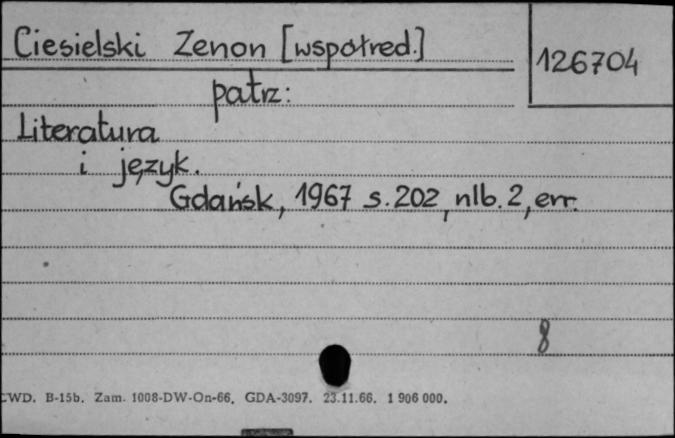 Ciesielski Zenon [współred.]
126704
patrz:
Literatura
i język.
Gdańsk, 1967 s. 202, nlb. 2, err.
8
CWD. B-15b. Zam. 1008-DW-On-66. GDA-3097. 23.11.66. 1 906 000.